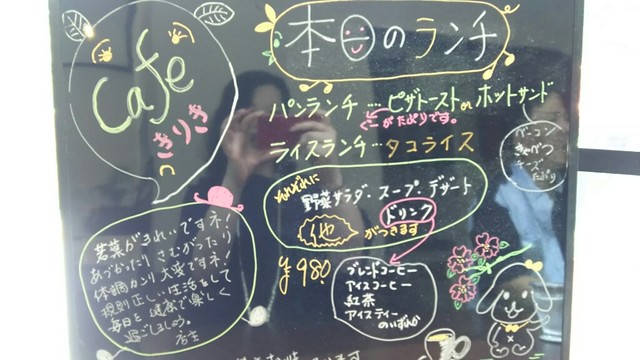 Cafe
きりき
本日のランチ
パンランチ…ピザトースト or ホットサンド
ぐーがたぷりです。
ライスランチ…タコライス
ベーコン
きゃべつ
チーズ
たぷり
それぞれに
野菜サラダ・スープ・デザート
ドリンク
がつきます
¥980
ブレンドコーヒー
アイスコーヒー
紅茶
アイスティー
のいずれか
若葉がきれいですネ!
あづかったりさむがったり
体調カンリ大変ですネ!
規則正しい生活をして
毎日を健康で楽しく
過ごしましょう。
店主